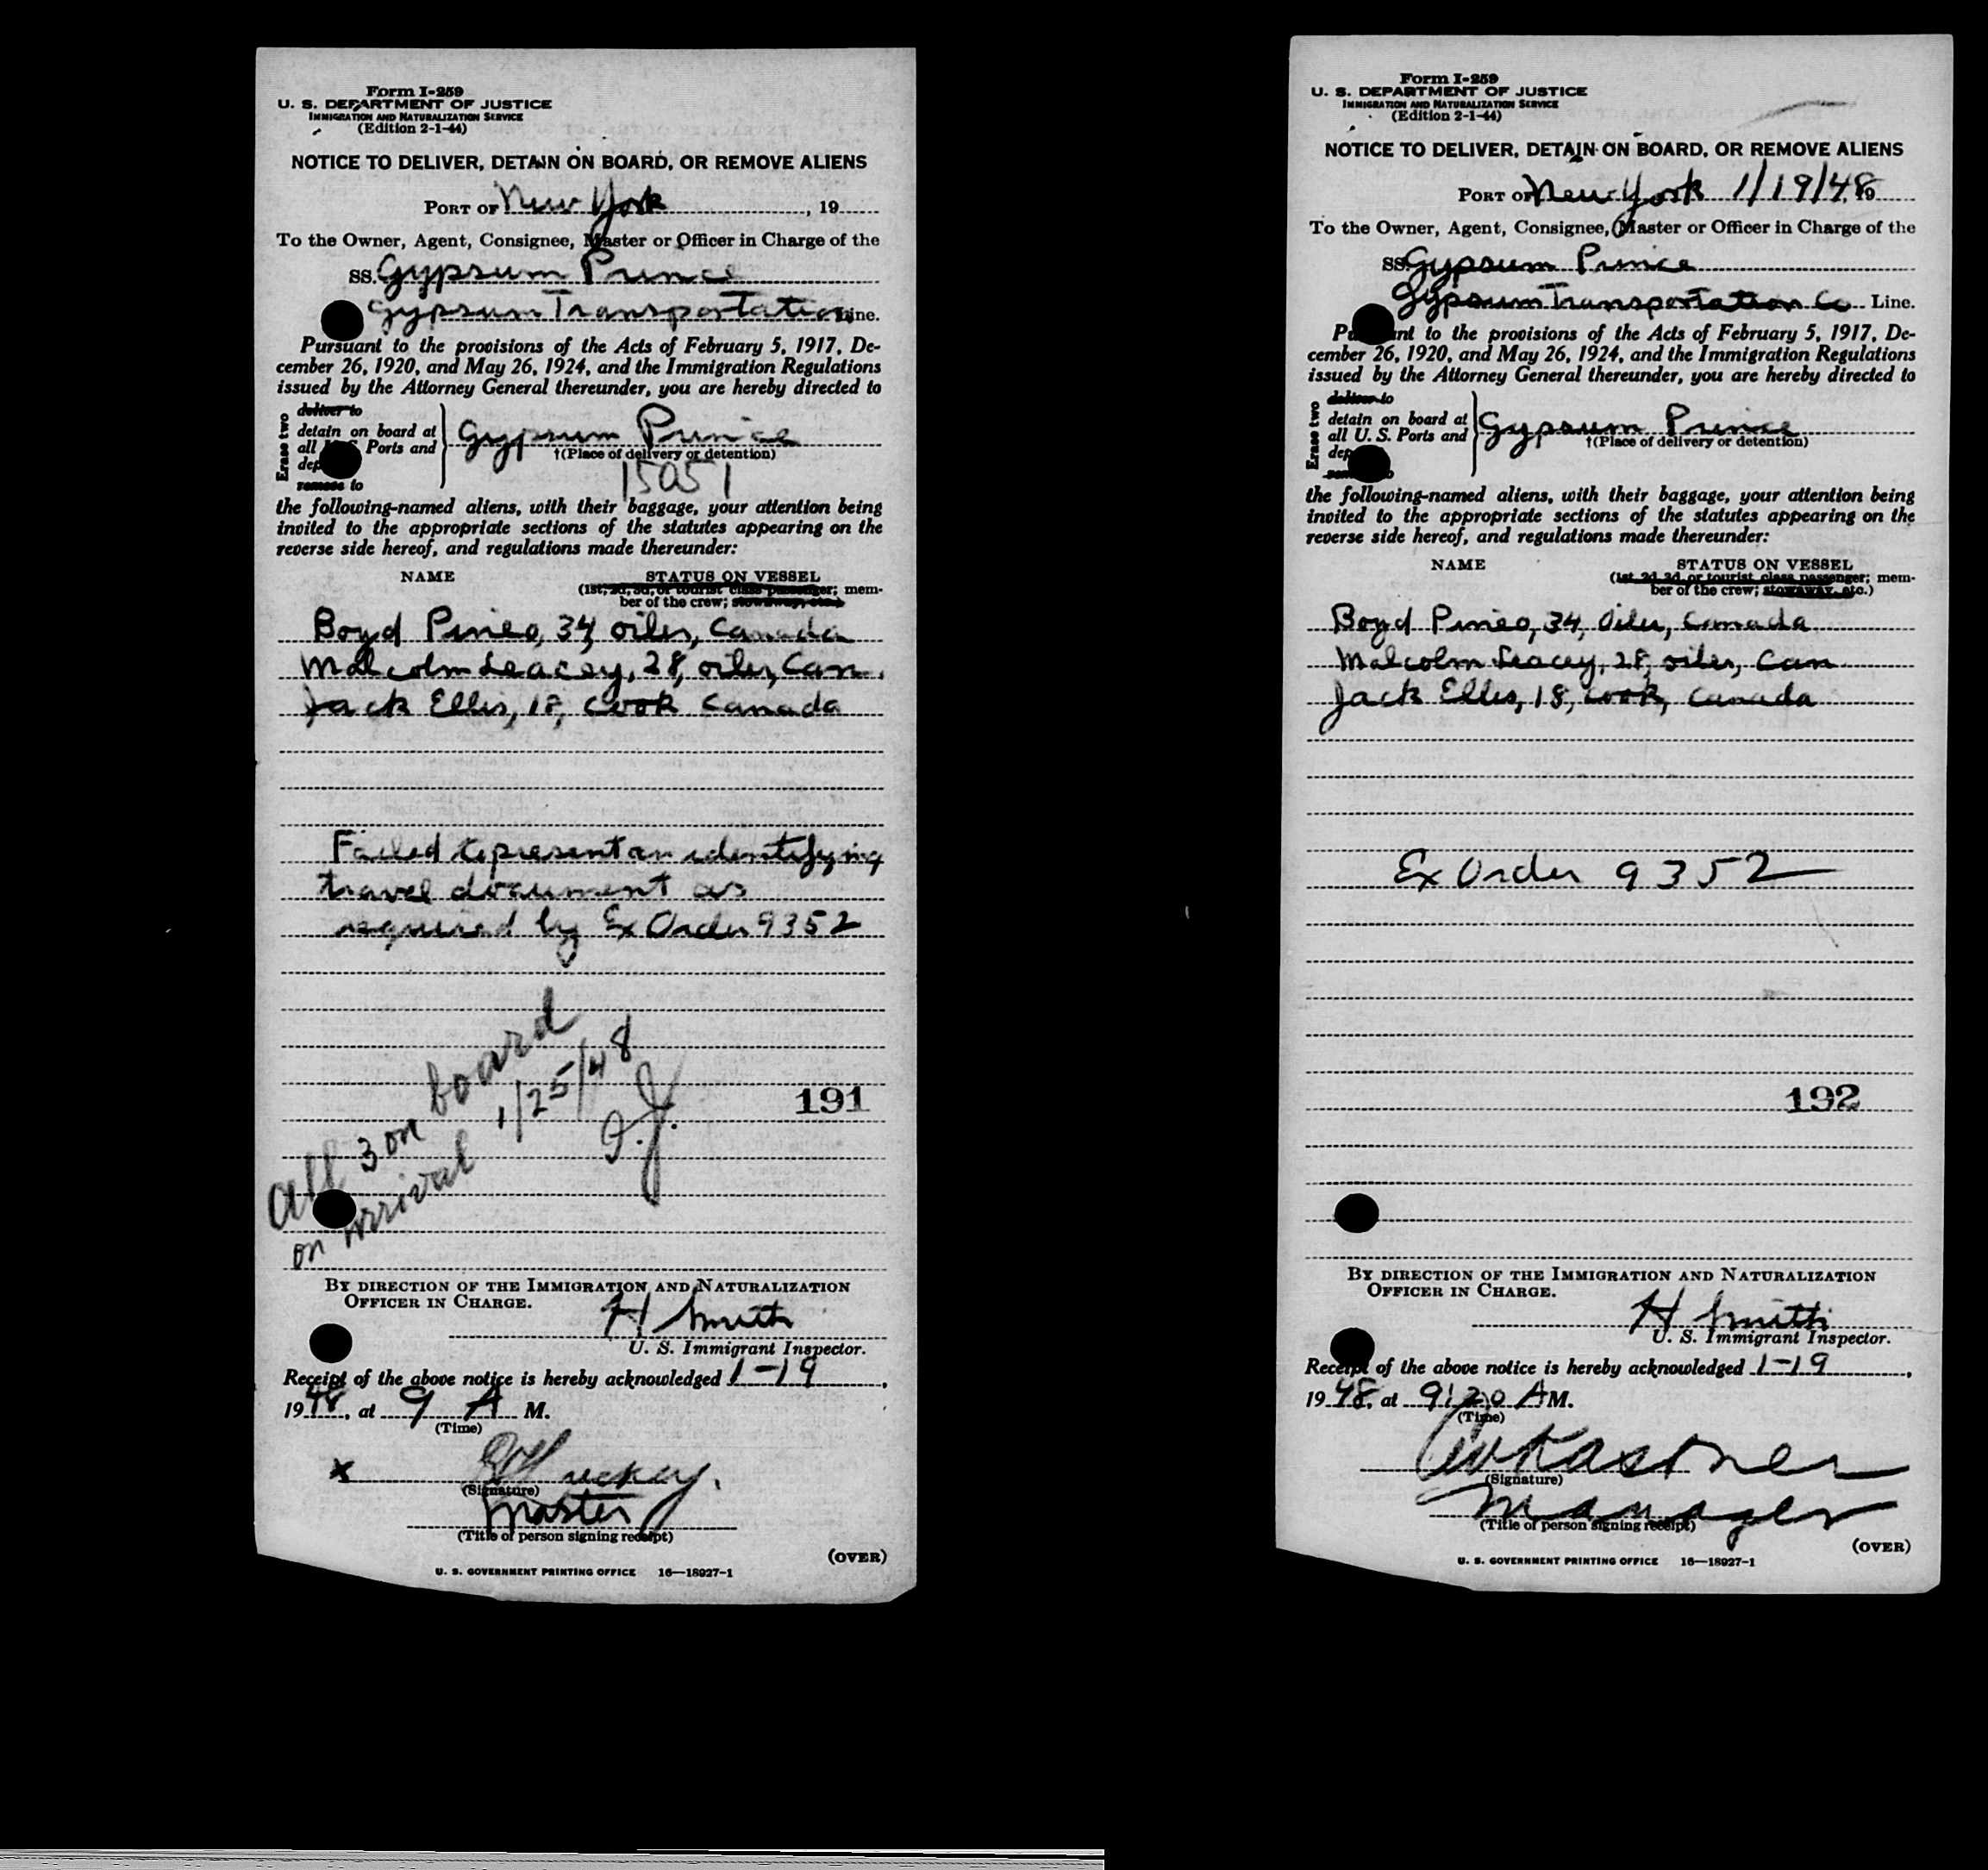 Form I-259
U. S. DEPARTMENT OF JUSTICE
IMMIGRATION AND NATURALIZATION SERVICE
(Edition 2-1-44)
NOTICE TO DELIVER, DETAIN ON BOARD, OR REMOVE ALIENS
PORT OF New York, 19
To the Owner, Agent, Consignee, Master or Officer in Charge of the
SS. Gypsum Prince
Gypsum Transportation Line.
Pursuant to the provisions of the Acts of February 5, 1917, De-
cember 26, 1920, and May 26, 1924, and the Immigration Regulations
issued by the Attorney General thereunder, you are hereby directed to
Erase two
deliver to
detain on board at
all U.S. Ports and
dep
remove to
Gypsum Prince
†(Place of delivery or detention)
15051
the following-named aliens, with their baggage, your attention being
invited to the appropriate sections of the statutes appearing on the
reverse side hereof, and regulations made thereunder:
NAME STATUS ON VESSEL
(1st, 2d, 3d, or tourist class passenger; mem-
ber of the crew; stowaway, etc.)
Boyd Pineo, 34, oiler, Canada
Malcolm Leacey, 28, oiler, Can.
Jack Ellis, 18, cook Canada
Failed to present an identifying
travel document as
required by Ex Order 9352
All 3 on board
on arrival 1/25/48
191
BY DIRECTION OF THE IMMIGRATION AND NATURALIZATION
OFFICER IN CHARGE.
H Smith
U. S. Immigrant Inspector.
Receipt of the above notice is hereby acknowledged 1-19,
1948, at 9 A M.
(Time)
x
(Signature)
Master
(Title of person signing receipt)
(OVER)
U. S. GOVERNMENT PRINTING OFFICE 16—18927-1
Form I-259
U. S. DEPARTMENT OF JUSTICE
IMMIGRATION AND NATURALIZATION SERVICE
(Edition 2-1-44)
NOTICE TO DELIVER, DETAIN ON BOARD, OR REMOVE ALIENS
PORT OF New York 1/19/48, 19
To the Owner, Agent, Consignee, Master or Officer in Charge of the
SS. Gypsum Prince
Gypsum Transportation Co Line.
Pursuant to the provisions of the Acts of February 5, 1917, De-
cember 26, 1920, and May 26, 1924, and the Immigration Regulations
issued by the Attorney General thereunder, you are hereby directed to
Erase two
deliver to
detain on board at
all U. S. Ports and
dep
remove to
Gypsum Prince
†(Place of delivery or detention)
the following-named aliens, with their baggage, your attention being
invited to the appropriate sections of the statutes appearing on the
reverse side hereof, and regulations made thereunder:
NAME STATUS ON VESSEL
(1st, 2d, 3d, or tourist class passenger; mem-
ber of the crew; stowaway, etc.)
Boyd Pineo, 34, Oiler, Canada
Malcolm Leacey, 28, oiler, Can
Jack Ellis, 18, cook, Canada
Ex Order 9352
192
BY DIRECTION OF THE IMMIGRATION AND NATURALIZATION
OFFICER IN CHARGE.
H Smith
U. S. Immigrant Inspector.
Receipt of the above notice is hereby acknowledged 1-19,
1948, at 9:20 A M.
(Time)
Kastner
(Signature)
Manager
(Title of person signing receipt)
(OVER)
U. S. GOVERNMENT PRINTING OFFICE 16—18927-1